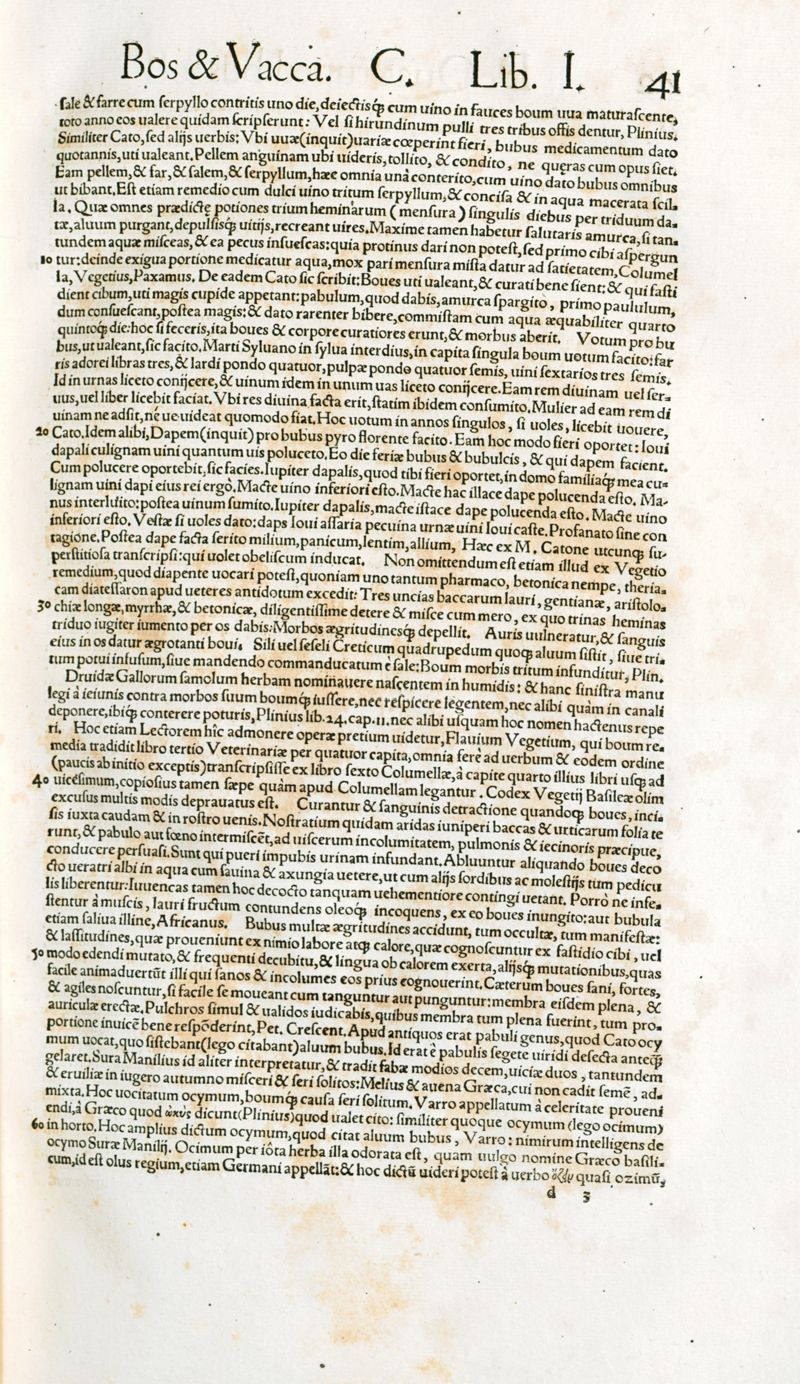 Bos & Vacca. C. Lib. I. 41
sale & farre cum serpyllo contritis uno die, deiectisq́; cum uino in fauces boum uua maturascente,
toto anno eos ualere quidam scripserunt: Vel si hirundinum pulli tres tribus offis dentur, Plinius.
Similiter Cato, sed alijs uerbis: Vbi uuæ (inquit) uariæ cœperint fieri, bubus medicamentum dato
quotannis, uti ualeant. Pellem anguinam ubi uideris, tollito, & condito, ne queras cum opus siet.
Eam pellem, & far, & salem, & serpyllum, hæc omnia unà conterito, cum uino dato bubus omnibus
ut bibant. Est etiam remedio cum dulci uino tritum serpyllum, & concisa & in aqua macerata scil
la. Quæ omnes prædictę potiones trium heminarum (mensura) singulis diebus per triduum da-
tæ, aluum purgant, depulsisq́; uitijs, recreant uires. Maxime tamen habetur salutaris amurca, si tan-
tundem aquæ misceas, & ea pecus insuescas: quia protinus dari non potest, sed primo cibi aspergun
10 tur: deinde exigua portione medicatur aqua, mox pari mensura mista datur ad satietatem, Columel
la, Vegetius, Paxamus. De eadem Cato sic scribit: Boues uti ualeant, & curati bene sient: & qui fasti
dient cibum, uti magis cupide appetant: pabulum, quod dabis, amurca spargito, primo paululum,
dum consuescant, postea magis: & dato rarenter bibere, commistam cum aqua æquabiliter quarto
quintoq́; die: hoc si feceris, ita boues & corpore curatiores erunt, & morbus aberit. Votum pro bu
bus, ut ualeant, sic facito. Marti Syluano in sylua interdius, in capita singula boum uotum facito: far
ris adorei libras tres, & lardi pondo quatuor, pulpæ pondo quatuor semis, uini sextarios tres semis.
Id in urnas liceto conijcere, & uinum idem in unum uas liceto conijcere. Eam rem diuinam uel ser-
uus, uel liber licebit faciat. Vbi res diuina facta erit, statim ibidem consumito. Mulier ad eam rem di
uinam ne adsit, né ue uideat quomodo fiat. Hoc uotum in annos singulos, si uoles, licebit uouere,
20 Cato. Idem alibi, Dapem (inquit) pro bubus pyro florente facito. Eam hoc modo fieri oportet: Ioui
dapali culignam uini quantum uis polluceto. Eo die feriæ bubus & bubulcis, & qui dapem facient.
Cum polucere oportebit, sic facies. Iupiter dapalis, quod tibi fieri oportet, in domo familiaq́; mea cu-
lignam uini dapi eius rei ergò. Macte uino inferiori esto. Macte hac illace dape polucenda esto. Ma-
nus interluito: postea uinum sumito. Iupiter dapalis, macte istace dape polucenda esto. Macte uino
inferiori esto. Vestæ si uoles dato: daps Ioui assaria pecuina urnæ uini Ioui caste. Profanato sine con
tagione. Postea dape facta serito milium, panicum, lentim, allium, Hæc ex M. Catone utcunq́; su-
perstitiosa transcripsi: qui uolet obeliscum inducat. Non omittendum est etiam illud ex Vegetio
remedium, quod diapente uocari potest, quoniam uno tantum pharmaco, betonica nempe, theria-
cam diatessaron apud ueteres antidotum excedit: Tres uncias baccarum lauri, gentianæ, aristolo-
30 chiæ longæ, myrrhæ, & betonicæ, diligentissime detere & misce cum mero, ex quo trinas heminas
triduo iugiter iumento per os dabis: Morbos ægritudinesq́; depellit. Auris uulneratur, & sanguis
eius in os datur ægrotanti boui. Sili uel seseli Creticum quadrupedum quoq; aluum sistit, siue tri-
tum potui infusum, siue mandendo commanducatum è sale: Boum morbis tritum infunditur, Plin.
Druidæ Gallorum samolum herbam nominauere nascentem in humidis: & hanc sinistra manu
legi à ieiunis contra morbos suum boumq́; iussere, nec respicere legentem, nec alibi quàm in canali
deponere, ibiq́; conterere poturis, Plinius lib. 24. cap. 11. nec alibi usquam hoc nomen hactenus repe
ri. Hoc etiam Lectorem hîc admonere operæ pretium uidetur, Flauium Vegetium, qui boum re-
media tradidit libro tertio Veterinariæ per quatuor capita, omnia ferè ad uerbum & eodem ordine
(paucis ab initio exceptis) transcripsisse ex libro sexto Columellæ, à capite quarto illius libri usq; ad
40 uicesimum, copiosius tamen sæpe quàm apud Columellam legantur. Codex Vegetij Basileæ olim
excusus multis modis deprauatus est. Curantur & sanguinis detractione quandoq; boues, inci-
sis iuxta caudam & in rostro uenis. Nostratium quidam aridas iuniperi baccas & urticarum folia te
runt, & pabulo aut fœno intermiscẽt, ad uiscerum incolumitatem, pulmonis & iecinoris præcipue,
conducere persuasi. Sunt qui pueri impubis urinam infundant. Abluuntur aliquando boues deco
cto ueratri albi in aqua cum sauina & axungia uetere, ut cum alijs sordibus ac molestijs tum pedicu
lis liberentur: Iuuencas tamen hoc decocto tanquam uehementiore contingi uetant. Porrò ne infe-
stentur à muscis, lauri fructum contundens oleoq́; incoquens, ex eo boues inungito: aut bubula
etiam saliua illine, Africanus. Bubus multæ ægritudines accidunt, tum occultæ, tum manifestæ:
& lassitudines, quæ proueniunt ex nimio labore atq; calore, quæ cognoscuntur ex fastidio cibi, uel
50 modo edendi mutato, & frequenti decubitu, & lingua ob calorem exerta, alijsq́; mutationibus, quas
facile animaduertũt illi qui sanos & incolumes eos prius cognouerint. Cæterum boues sani, fortes,
& agiles noscuntur, si facile se moueant cum tanguntur aut punguntur: membra eisdem plena, &
auriculæ erectæ. Pulchros simul & ualidos iudicabis, quibus membra tum plena fuerint, tum pro-
portione inuicẽ bene respõderint, Pet. Crescent. Apud antiquos erat pabuli genus, quod Cato ocy
mum uocat, quo sistebant (lego citabant) aluum bubus. Id erat è pabulis segete uiridi desecta anteq̃
gelaret. Sura Manilius id aliter interpretatur, & tradit fabæ modios decem, uiciæ duos, tantundem
& eruiliæ in iugero autumno misceri & seri solitos: Melius & auena Græca, cui non cadit semẽ, ad-
mixta. Hoc uocitatum ocymum, boumq́; causa seri solitum. Varro appellatum à celeritate proueni
endi, à Græco quod ὠκὺς dicunt (Plinius) quod ualet cito: similiter quoque ocymum (lego ocimum)
60 in horto. Hoc amplius dictum ocymum, quod citat aluum bubus, Varro: nimirum intelligens de
ocymo Suræ Manilij. Ocimum per iôta herba illa odorata est, quam uulgo nomine Græco basili-
cum, id est olus regium, etiam Germani appellãt: & hoc dictũ uideri potest à uerbo ὄζειν quasi ozimũ,
d 3